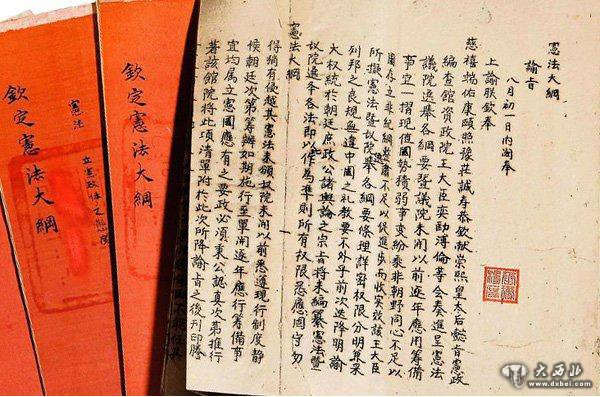 憲法大綱
諭旨
八月初一日內閣奉
上諭朕欽奉
慈禧端佑康頤豫莊誠壽恭欽獻崇熙皇太后懿旨憲政
編查館資政院王大臣奕劻溥倫等會奏進呈憲法
議院選舉各綱要暨議院未開以前逐年應用籌備
事宜一摺現值國勢積弱事變紛乘非朝野同心不足以
圖存立非紀綱整肅不足以促進步而收實效該王大臣
所擬憲法暨議院選舉各綱要條理詳密權限分明兼采
列邦之良規無違中國之禮教要不外乎前次迭降明諭
大權統於朝廷庶政公諸輿論之宗旨將來編纂憲法暨
議院選舉各法即以作為準則所有權限悉應固守勿
憲法大綱
得稍有侵越其憲法未頒議院未開以前悉遵現行制度靜
候朝廷次第籌辦如期施行至單開逐年應行籌備事
宜均屬立憲國應有之要政必須秉公認真次第推行
著該館院將此項清單附於此次所降諭旨之後刊印謄
欽定憲法大綱
憲法
立憲政体
欽定憲法大綱
大西北
www.dxbei.com